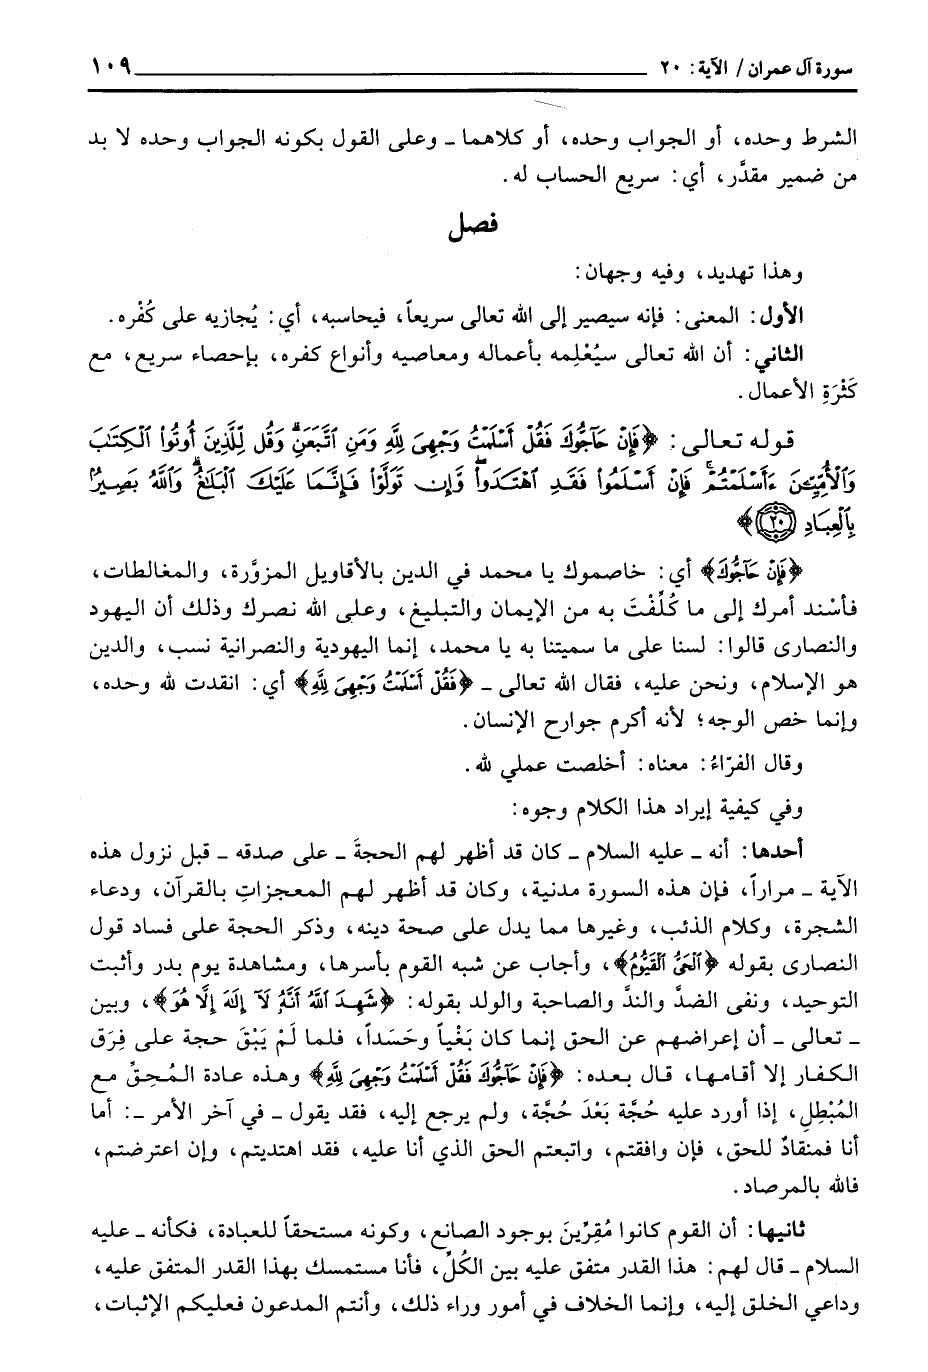 سورة آل عمران / الآية: ٢٠ ١٠٩
الشرط وحده، أو الجواب وحده، أو كلاهما ـ وعلى القول بكونه الجواب وحده لا بد
من ضمير مقدَّر، أي: سريع الحساب له.
فصل
وهذا تهديد، وفيه وجهان:
الأول: المعنى: فإنه سيصير إلى الله تعالى سريعاً، فيحاسبه، أي: يُجازيه على كُفْره.
الثاني: أن الله تعالى سيُعْلِمه بأعماله ومعاصيه وأنواع كفره، بإحصاء سريع، مع
كَثْرَةِ الأعمال.
قوله تعالى: ﴿فَإِنْ حَآجُّوكَ فَقُلْ أَسْلَمْتُ وَجْهِىَ لِلَّهِ وَمَنِ ٱتَّبَعَنِۗ وَقُل لِّلَّذِينَ أُوتُوا۟ ٱلْكِتَـٰبَ
وَٱلْأُمِّيِّـۧنَ ءَأَسْلَمْتُمْۚ فَإِنْ أَسْلَمُوا۟ فَقَدِ ٱهْتَدَوا۟ۖ وَّإِن تَوَلَّوْا۟ فَإِنَّمَا عَلَيْكَ ٱلْبَلَـٰغُۗ وَٱللَّهُ بَصِيرٌۢ
بِٱلْعِبَادِ ٢٠﴾
﴿فَإِنْ حَآجُّوكَ﴾ أي: خاصموك يا محمد في الدين بالأقاويل المزوَّرة، والمغالطات،
فأسْند أمرك إلى ما كُلِّفْتَ به من الإيمان والتبليغ، وعلى الله نصرك وذلك أن اليهود
والنصارى قالوا: لسنا على ما سميتنا به يا محمد، إنما اليهودية والنصرانية نسب، والدين
هو الإسلام، ونحن عليه، فقال الله تعالى ـ ﴿فَقُلْ أَسْلَمْتُ وَجْهِىَ لِلَّهِ﴾ أي: انقدت لله وحده،
وإنما خص الوجه؛ لأنه أكرم جوارح الإنسان.
وقال الفرّاءُ: معناه: أخلصت عملي لله.
وفي كيفية إيراد هذا الكلام وجوه:
أحدها: أنه ـ عليه السلام ـ كان قد أظهر لهم الحجةَ ـ على صدقه ـ قبل نزول هذه
الآية ـ مراراً، فإن هذه السورة مدنية، وكان قد أظهر لهم المعجزاتِ بالقرآن، ودعاء
الشجرة، وكلام الذئب، وغيرها مما يدل على صحة دينه، وذكر الحجة على فساد قول
النصارى بقوله ﴿ٱلْحَىُّ ٱلْقَيُّومُ﴾، وأجاب عن شبه القوم بأسرها، ومشاهدة يوم بدر وأثبت
التوحيد، ونفى الضدَّ والندَّ والصاحبة والولد بقوله: ﴿شَهِدَ ٱللَّهُ أَنَّهُۥ لَآ إِلَـٰهَ إِلَّا هُوَ﴾، وبين
ـ تعالى ـ أن إعراضهم عن الحق إنما كان بَغْياً وحَسَداً، فلما لَمْ يَبْقَ حجة على فِرَق
الكفار إلا أقامها، قال بعده: ﴿فَإِنْ حَآجُّوكَ فَقُلْ أَسْلَمْتُ وَجْهِىَ لِلَّهِ﴾ وهذه عادة المُحِقِّ مع
المُبْطِلِ، إذا أورد عليه حُجَّة بَعْدَ حُجَّة، ولم يرجع إليه، فقد يقول ـ في آخر الأمر ـ: أما
أنا فمنقادٌ للحق، فإن وافقتم، واتبعتم الحق الذي أنا عليه، فقد اهتديتم، وإن اعترضتم،
فالله بالمرصاد.
ثانيها: أن القوم كانوا مُقِرِّينَ بوجود الصانع، وكونه مستحقاً للعبادة، فكأنه ـ عليه
السلام ـ قال لهم: هذا القدر متفق عليه بين الكُلِّ، فأنا مستمسك بهذا القدر المتفق عليه،
وداعي الخلق إليه، وإنما الخلاف في أمور وراء ذلك، وأنتم المدعون فعليكم الإثبات،